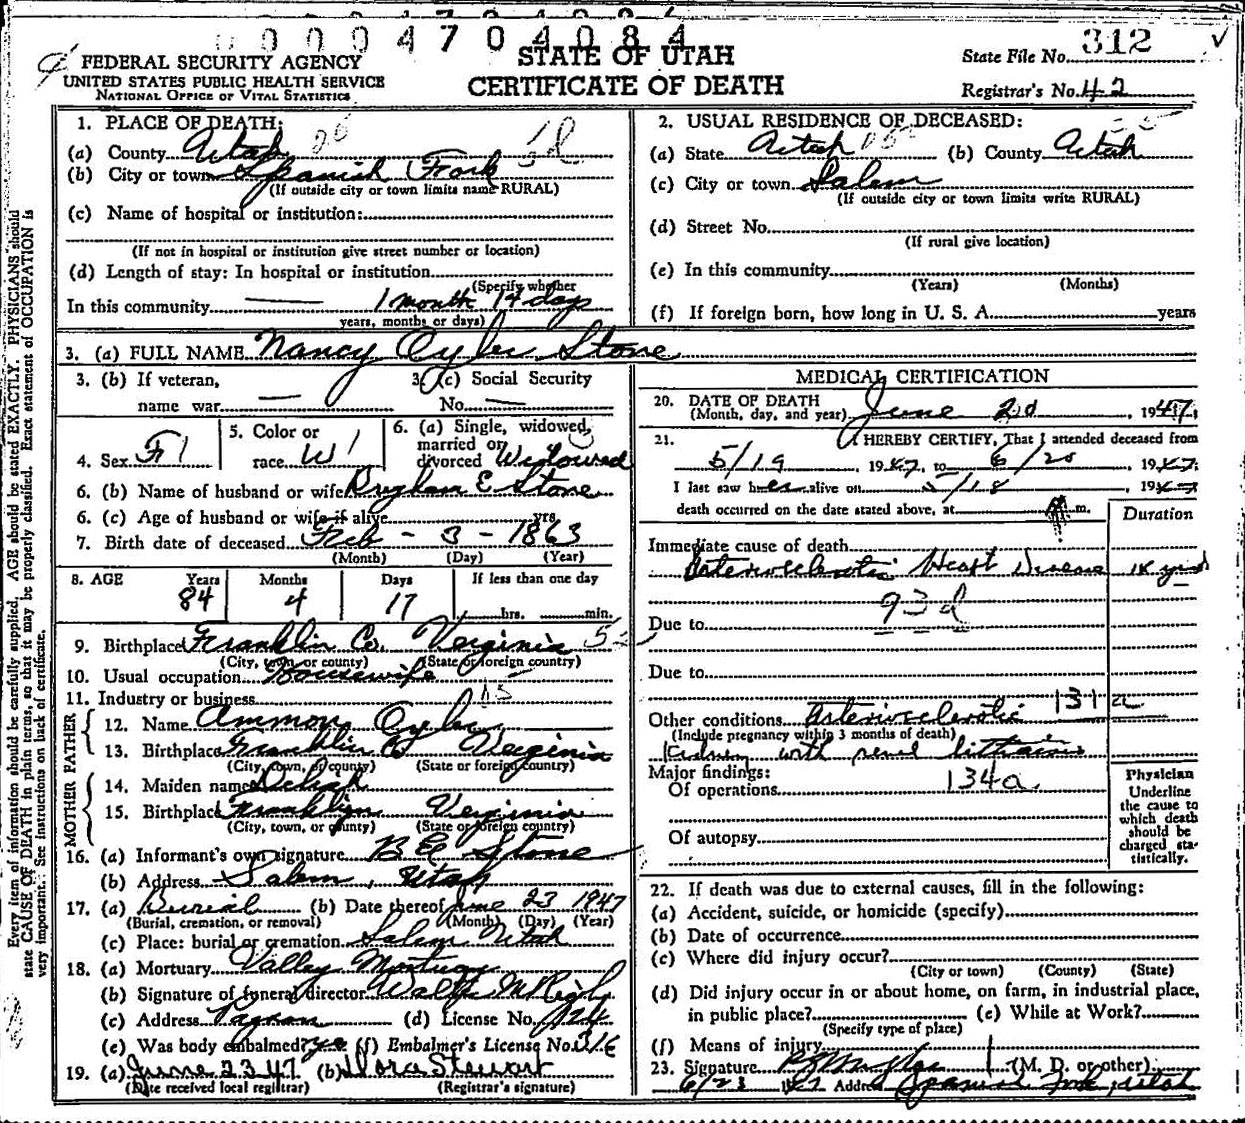 0004704084
FEDERAL SECURITY AGENCY
UNITED STATES PUBLIC HEALTH SERVICE
NATIONAL OFFICE OF VITAL STATISTICS
STATE OF UTAH
CERTIFICATE OF DEATH
State File No. 312
Registrar's No. 42
Every item of information should be carefully supplied. AGE should be stated EXACTLY. PHYSICIANS should
state CAUSE OF DEATH in plain terms, so that it may be properly classified. Exact statement of OCCUPATION is
very important. See instructions on back of certificate.
1. PLACE OF DEATH:
(a) County Utah
(b) City or town Spanish Fork
(If outside city or town limits name RURAL)
(c) Name of hospital or institution:
(If not in hospital or institution give street number or location)
(d) Length of stay: In hospital or institution
(Specify whether
In this community 1 month 14 days
years, months or days)
2. USUAL RESIDENCE OF DECEASED:
(a) State Utah (b) County Utah
(c) City or town Salem
(If outside city or town limits write RURAL)
(d) Street No.
(If rural give location)
(e) In this community
(Years) (Months)
(f) If foreign born, how long in U. S. A. years
3. (a) FULL NAME Nancy Oyler Stone
3. (b) If veteran,
name war
3. (c) Social Security
No.
4. Sex F
5. Color or
race W
6. (a) Single, widowed,
married or
divorced Widowed
6. (b) Name of husband or wife E Stone
6. (c) Age of husband or wife if alive yrs.
7. Birth date of deceased Feb - 3 - 1863
(Month) (Day) (Year)
8. AGE Years Months Days If less than one day
84 4 17 hrs. min.
9. Birthplace Franklin Co. Verginia
(City, town, or county) (State or foreign country)
10. Usual occupation Housewife
11. Industry or business
FATHER
12. Name Ammon Oyler
13. Birthplace Franklin Co Verginia
(City, town, or county) (State or foreign country)
MOTHER
14. Maiden name Deliah
15. Birthplace Franklyn Verginia
(City, town, or county) (State or foreign country)
16. (a) Informant's own signature B E Stone
(b) Address Salem, Utah
17. (a) Burial (b) Date thereof June 23 1947
(Burial, cremation, or removal) (Month) (Day) (Year)
(c) Place: burial or cremation Salem Utah
18. (a) Mortuary Valley Mortuary
(b) Signature of funeral director
(c) Address Payson (d) License No. 124
(e) Was body embalmed? yes (f) Embalmer's License No. 216
19. (a) June 23 47 (b) Nora Stewart
(Date received local registrar) (Registrar's signature)
MEDICAL CERTIFICATION
20. DATE OF DEATH
(Month, day, and year) June 20, 1947
21. I HEREBY CERTIFY, That I attended deceased from
5/19, 1947, to 6/20, 1947
I last saw her alive on /18, 1947
death occurred on the date stated above, at m.
Duration
Immediate cause of death
Arteriosclerotic Heart Disease
93d
Due to
Due to
131 a
Other conditions Arteriosclerotic
(Include pregnancy within 3 months of death)
Kidney with renal lithiasis
Major findings:
Of operations 134a
Of autopsy
Physician
Underline
the cause to
which death
should be
charged sta-
tistically.
22. If death was due to external causes, fill in the following:
(a) Accident, suicide, or homicide (specify)
(b) Date of occurrence
(c) Where did injury occur?
(City or town) (County) (State)
(d) Did injury occur in or about home, on farm, in industrial place,
in public place? (e) While at Work?
(Specify type of place)
(f) Means of injury
23. Signature (M. D. or other)
6/23 1947 Address Spanish Fork, Utah